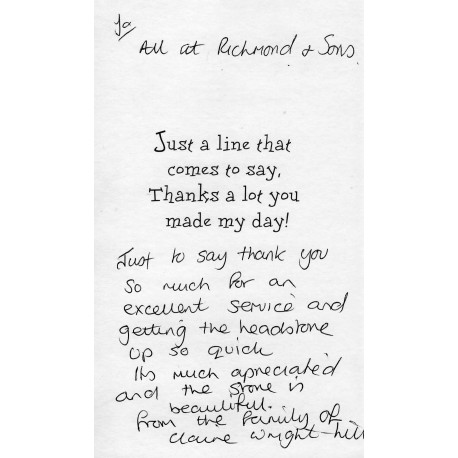 To
All at Richmond & Sons
Just a line that
comes to say,
Thanks a lot you
made my day!
Just to say thank you
so much for an
excellent service and
getting the headstone
up so quick
Its much apreciated
and the stone is
beautiful.
from the family of
Claire Wright-hill